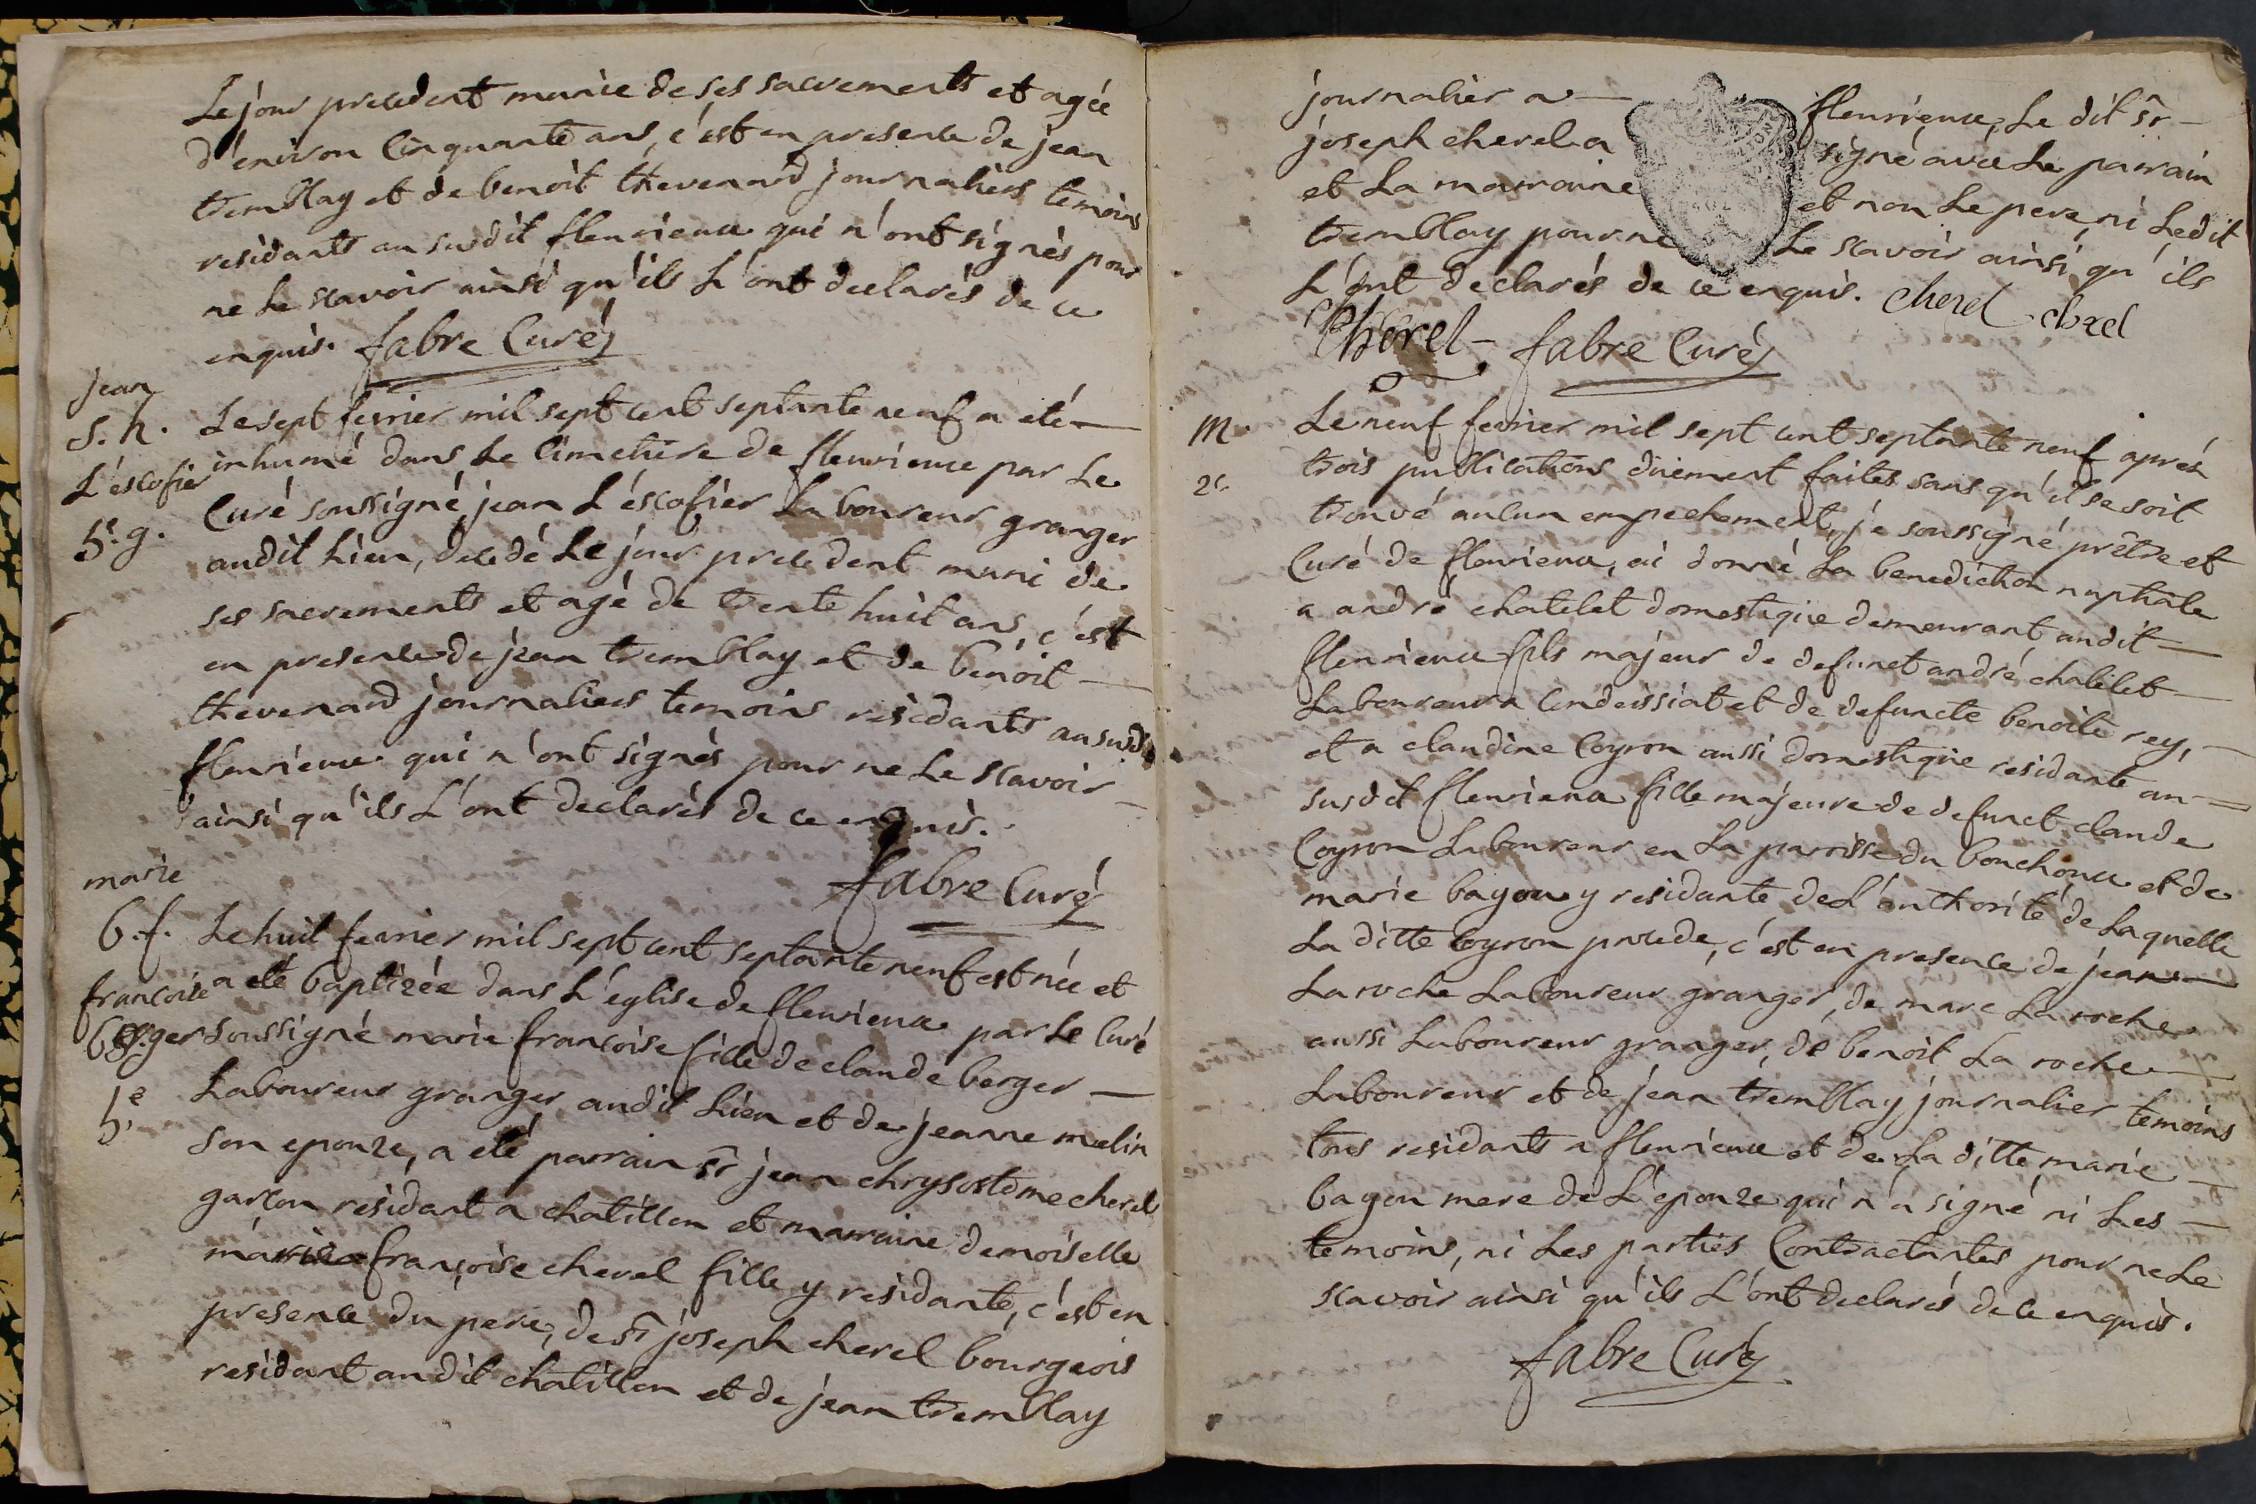 Le jour precedent munie de ses sacrements et agée
d'environ Cinquante ans, c'est en presence de jean
tremblay et de benoit thevenard journaliers temoins
residants au susdit fleurieux qui n'ont signés pour
ne Le scavoir ainsi qu'ils L'ont declarés de ce
enquis. fabre Curé
jean
S. h.
L'éscofier
h.s g.
Le sept fevrier mil sept cent septante neuf a eté
inhumé dans Le Cimetiere de fleurieux par Le
Curé soussigné, jean L'éscofier Laboureur granger
audit Lieu, decedé Le jour precedent muni de
ses sacrements et agé de trente huit ans, c'est
en presence de jean tremblay et de benoit
thevenard journaliers temoins residants au susdt
fleurieux qui n'ont signés pour ne Le scavoir
ainsi qu'ils L'ont declarés de ce enquis.
fabre Curé
marie
b. f.
francoise
berger
h.e
Le huit fevrier mil sept cent septante neuf est née et
a eté baptizée dans L'église de fleurieux par Le Curé
soussigné marie francoise fille de claude berger
Laboureur granger audit Lieu et de jeanne melin
son epouze, a eté parrain sr jean chrysostome cherel
garcon residant a chatillon et marraine demoiselle
marie françoise cherel fille y residante, c'est en
presence du pere, de sr joseph cherel bourgeois
residant audit chatillon et de jean tremblay
journalier a fleurieux, Le dit sr
joseph cherel a signé avec Le parrain
et La marraine et non Le pere, ni Ledit
tremblay pour ne Le scavoir ainsi qu'ils
L'ont declarés de ce enquis. cherel cherel
Cherel fabre Curé
m.
2c.
Le neuf fevrier mil sept cent septante neuf aprés
trois publications düement faites sans qu'il se soit
trouvé aucun empechement, je soussigné prêtre et
Curé de fleurieux, ai donné La benediction nuptiale
a andré chatelet domestique demeurant audit
fleurieux fils majeur de defunct andré chatelet
Laboureur a Condeissiat et de defuncte benoite rey,
et a claudine Coyron aussi domestique residante au
susdit fleurieux fille majeure de defunct claude
Coyron Laboureur en La parroisse du bouchoux et de
marie bayon y residante de L'authorité de Laquelle
La ditte Coyron procede, c'est en presence de jean
La roche Laboureur granger, de marc La roche
aussi Laboureur granger, de benoit La roche
Laboureur et de jean tremblay journalier temoins
tous residants a fleurieux et de La ditte marie
bayon mere de L'epouze qui n'a signé ni Les
temoins, ni Les parties Contractantes pour ne Le
scavoir ainsi qu'ils L'ont declarés de ce enquis.
fabre Curé